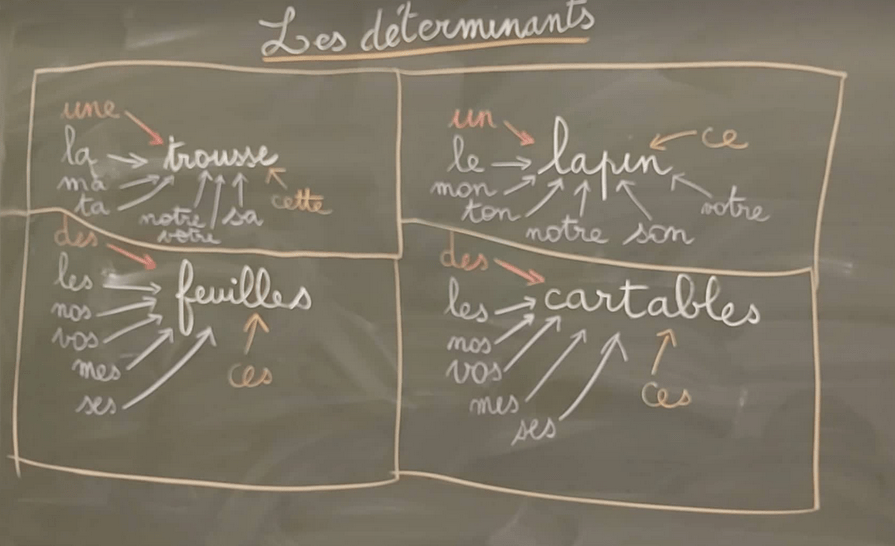 Les déterminants
une
la
ma
ta
trousse
notre
votre
sa
cette
un
le
mon
ton
lapin
notre
son
votre
ce
des
les
nos
vos
mes
ses
feuilles
ces
des
les
nos
vos
mes
ses
cartables
ces